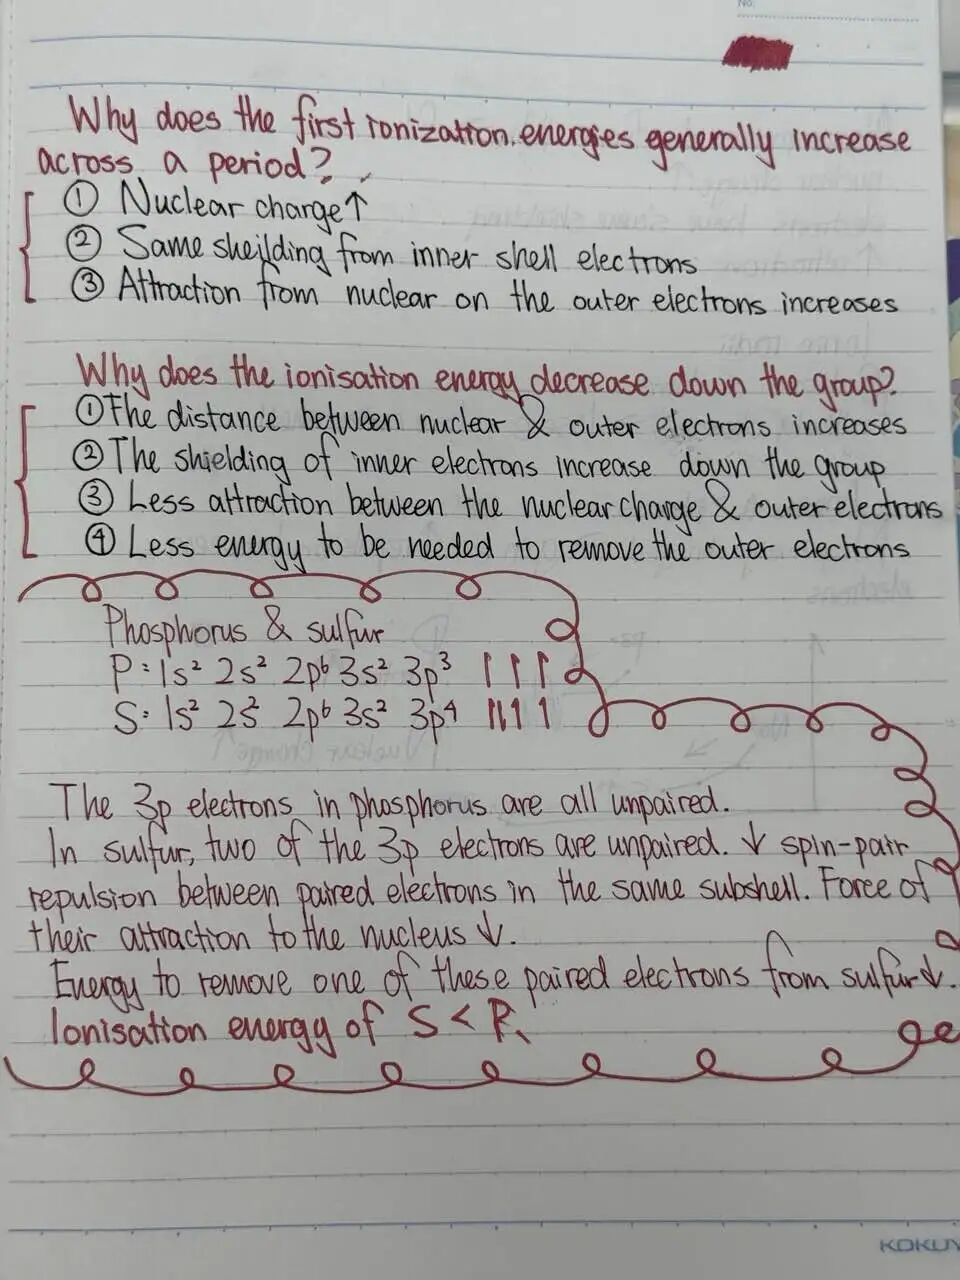 No.
Why does the first ionization energies generally increase
across a period?
① Nuclear charge↑
② Same sheilding from inner shell electrons
③ Attraction from nuclear on the outer electrons increases
Why does the ionisation energy decrease down the group?
①The distance between nuclear & outer electrons increases
②The shielding of inner electrons increase down the group
③ Less attraction between the nuclear charge & outer electrons
④ Less energy to be needed to remove the outer electrons
Phosphorus & sulfur
P: 1s² 2s² 2p⁶ 3s² 3p³ ↿ ↿ ↿
S: 1s² 2s² 2p⁶ 3s² 3p⁴ ↿⇂ ↿ ↿
The 3p electrons in phosphorus are all unpaired.
In sulfur, two of the 3p electrons are unpaired. ↓ spin-pair
repulsion between paired electrons in the same subshell. Force of
their attraction to the nucleus ↓.
Energy to remove one of these paired electrons from sulfur↓.
Ionisation energy of S < P.